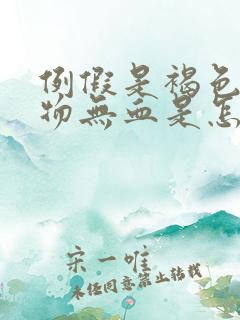 例假是褐色
物無血是怎
宋一唯
未经同意禁止转载